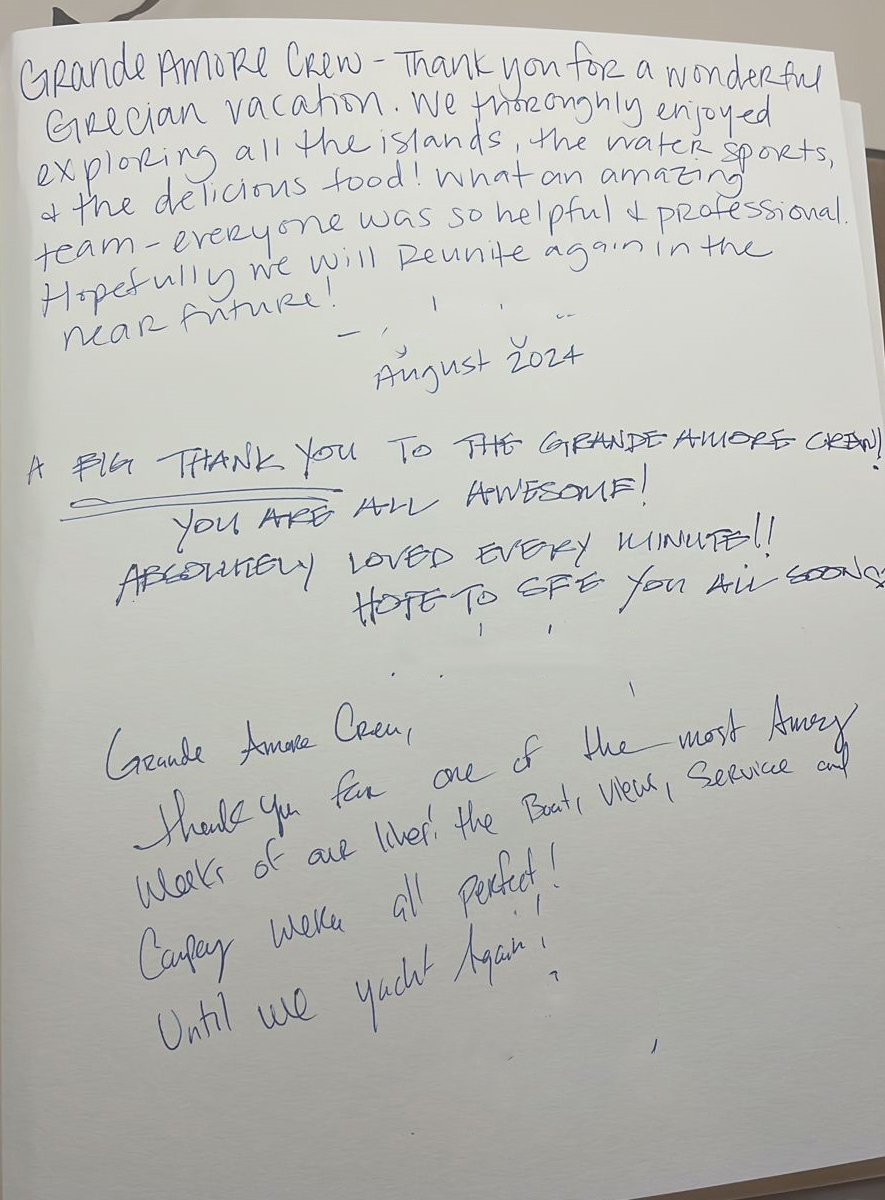 Grande Amore Crew - Thank you for a wonderful
Grecian vacation. We thoroughly enjoyed
exploring all the islands, the water sports,
& the delicious food! What an amazing
team - everyone was so helpful & professional.
Hopefully we will Reunite again in the
near future!
August 2024
A BIG THANK YOU TO THE GRANDE AMORE CREW!
YOU ARE ALL AWESOME!
ABSOLUTELY LOVED EVERY MINUTE!!
HOPE TO SEE YOU ALL SOON
Grande Amore Crew,
Thank you for one of the most
Weeks of our lives! the Boat, Views, Service and
were all perfect!
Until we yacht Again!